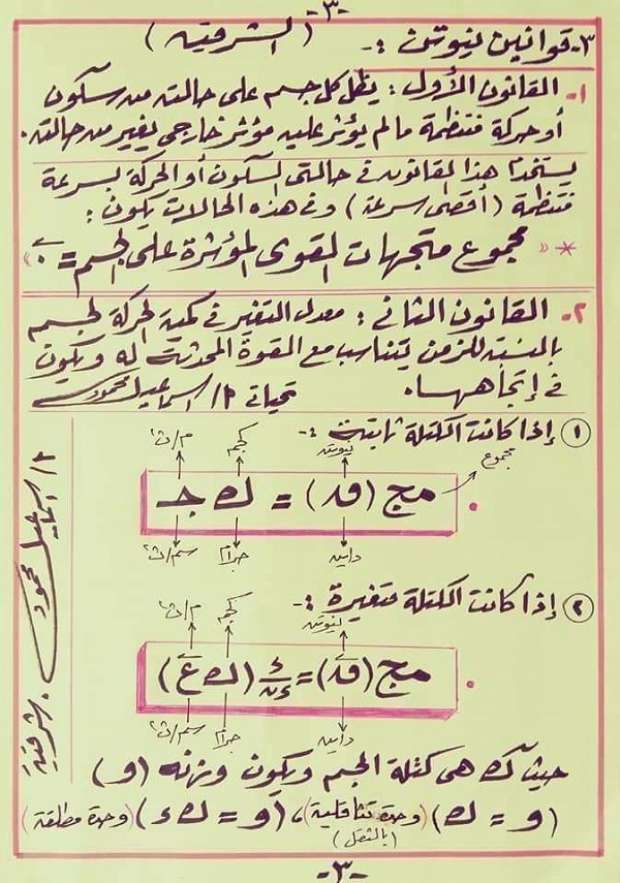 -٣-
٣- قوانين نيوتن :- (الشرقية)
١- القانون الأول : يظل كل جسم على حالته من سكون
أو حركة منتظمة ما لم يؤثر عليه مؤثر خارجي يغير من حالته.
يستخدم هذا القانون في حالتى السكون أو الحركة بسرعة
منتظمة (أقصى سرعة) وفى هذه الحالات يكون :
* « مجموع متجهات القوى المؤثرة على الجسم = ٠ »
٢- القانون الثانى : معدل التغير في كمية الحركة لجسم
بالنسبة للزمن يتناسب مع القوة المحدثة له ويكون
في إتجاهها. تحياتى ٢/ اسماعيل محمود
١ إذا كانت الكتلة ثابتة :-
م/ث² كجم نيوتن مجموع
مج (قَ) = ك جـ
سم/ث² جرام داين
٢ إذا كانت الكتلة متغيرة :-
م/ث كجم نيوتن
مج (قَ) = ء/ءن (ك عَ)
سم/ث جرام داين
حيث ك هى كتلة الجسم ويكون وزنه (و)
(و = ك) (وحدة تثاقلية)، (و = ك ء) (وحدة مطلقة)
(بالثقل)
-٣-
٢/ اسماعيل محمود. شرقية